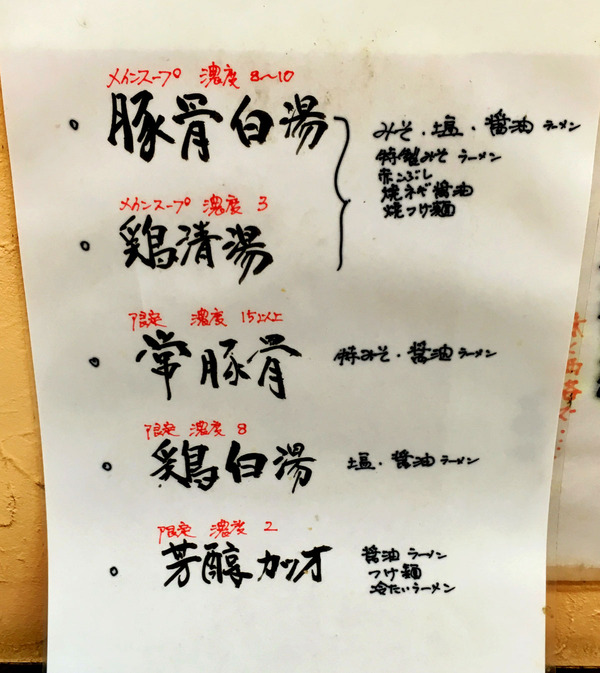 メインスープ 濃度 8〜10
・豚骨白湯
みそ・塩・醤油ラーメン
特製みそラーメン
赤こぶし
焼ネギ醤油
焼つけ麺
メインスープ 濃度 3
・鶏清湯
限定 濃度 15以上
・常豚骨
特みそ・醤油ラーメン
限定 濃度 8
・鶏白湯
塩・醤油ラーメン
限定 濃度 2
・芳醇カツオ
醤油ラーメン
つけ麺
冷たいラーメン